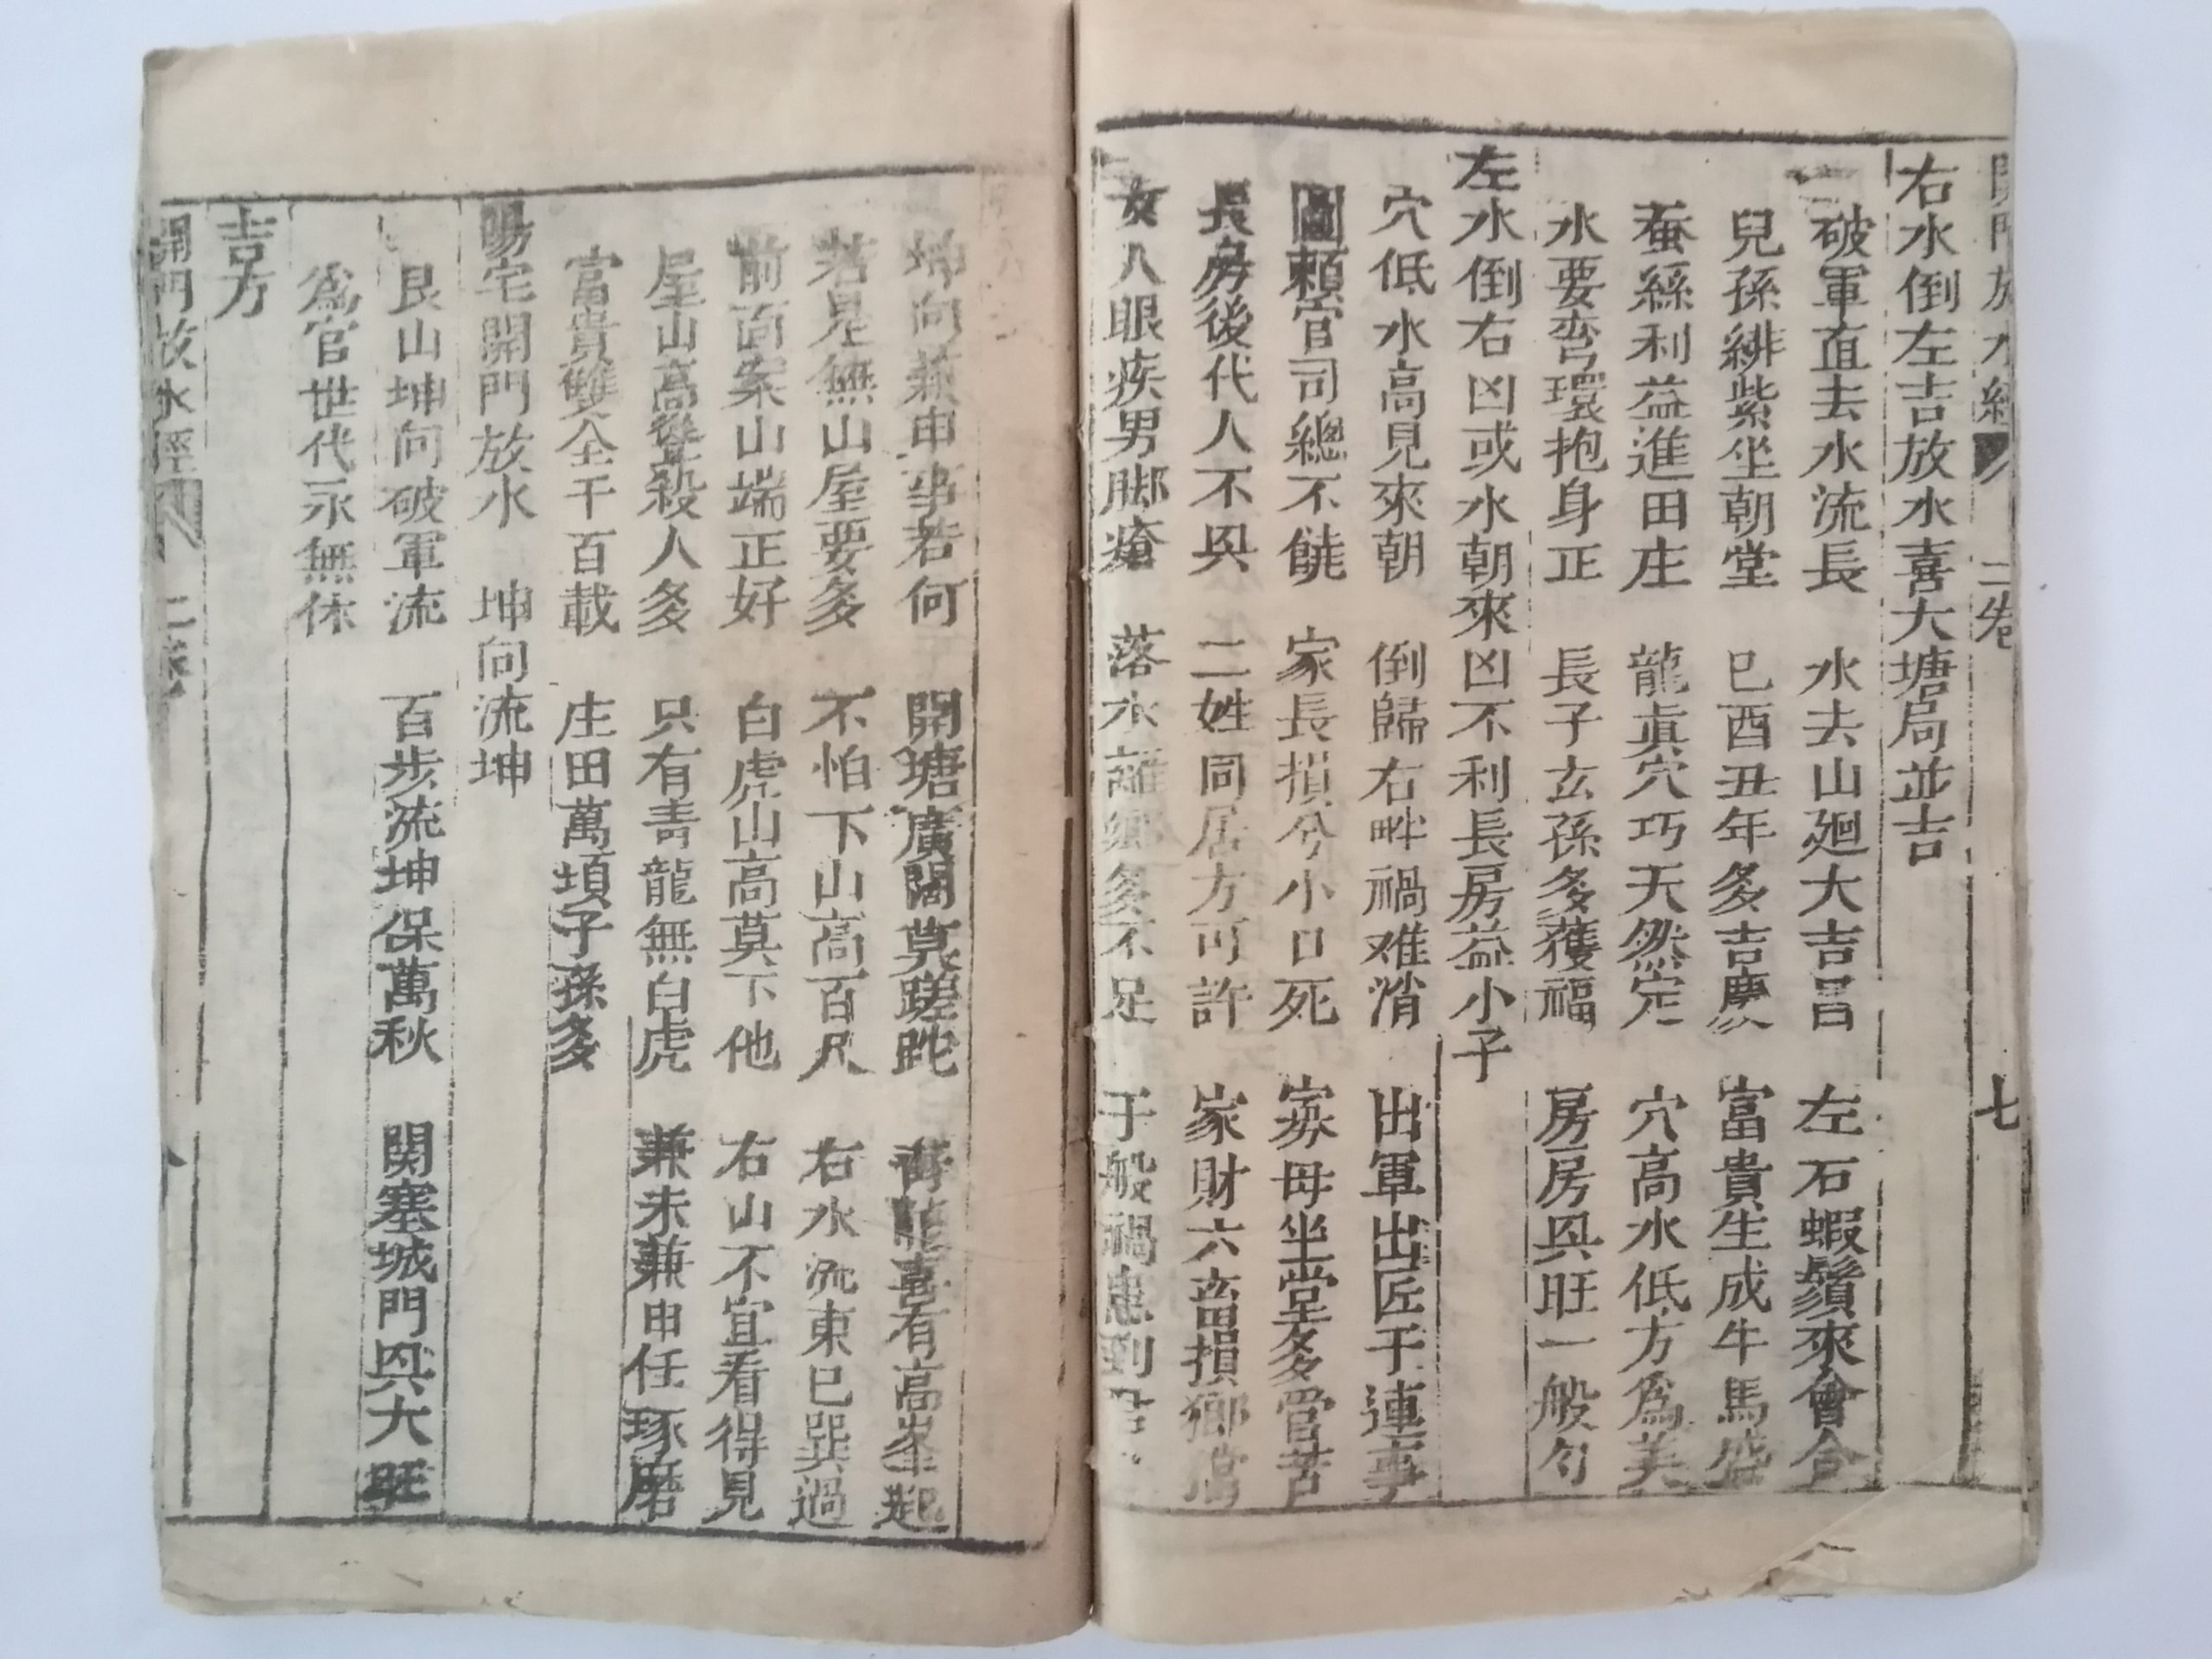 開門放水經 二卷 七
右水倒左吉放水喜大塘局並吉
破軍直去水流長 水去山廻大吉昌 左右蝦鬚來會合
兒孫緋紫坐朝堂 巳酉丑年多吉慶 富貴生成牛馬盛
蚕絲利益進田庄 龍眞穴巧天然定 穴高水低方為美
水要弯環抱身正 長子玄孫多獲福 房房㒷旺一般匀
左水倒右凶或水朝來凶不利長房益小子
穴低水高見來朝 倒歸右畔禍难消 出軍出匠干連事
圖賴官司總不饒 家長損兮小口死 寡母坐堂多管苦
長房後代人不㒷 二姓同居方可許 家財六畜損鄉當
女人眼疾男脚瘡 落水離鄉多不足 千般禍患到
坤向兼申事若何 開塘廣闊莫蹉跎 青龍喜有高峯起
若是無山屋要多 不怕下山高百尺 右水流東巳巽過
前面案山端正好 白虎山高莫下他 右山不宜看得見
屋山高聳殺人多 只有青龍無白虎 兼未兼申任琢磨
富貴雙全千百載 庄田萬頃子孫多
陽宅開門放水 坤向流坤
艮山坤向破軍流 百步流坤保萬秋 関塞城門㒷大旺
為官世代永無休
吉方
開門放水經 二卷 八